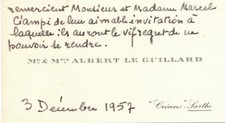 remercient Monsieur et Madame Marcel
Ciampi de leur aimable invitation à
laquelle ils auront le vif regret de ne
pouvoir se rendre.
Mr & Mme ALBERT LE GUILLARD
3 Décembre 1957
"Créans" Sarthe